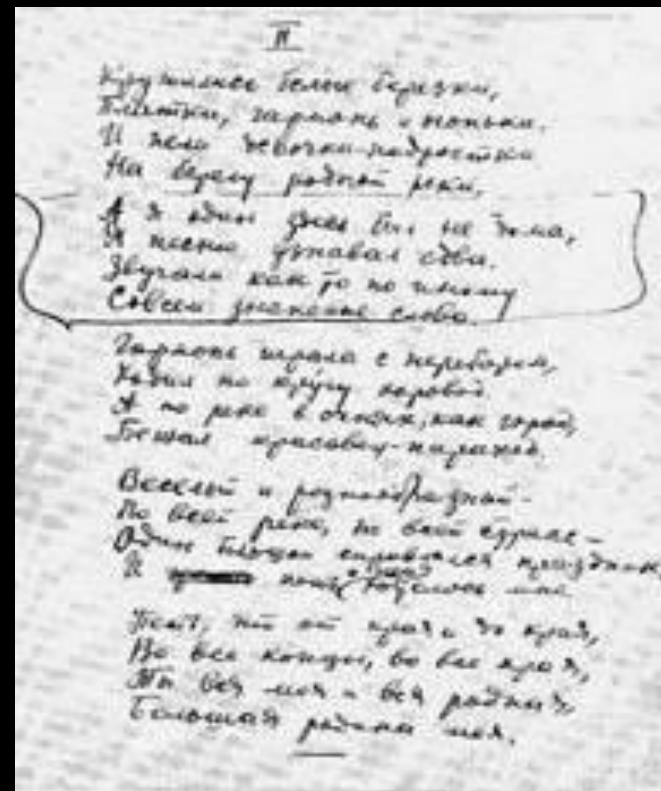 II
Кружились белые березки,
Платки, гармонь и огоньки.
И пели девочки-подростки
На берегу родной реки.
А я один здесь был не дома,
И песню узнавал едва.
Звучали как-то по иному
Совсем знакомые слова.
Гармонь играла с перебором,
Ходил по кругу хоровод.
А по реке в огнях, как город,
Бежал красавец-пароход.
Веселый и разнообразный -
По всей реке, по всей стране -
Один большой справлялся праздник
И петь хотелось мне
Петь, что от края и до края,
Во все концы, во все края,
Ты вся моя и вся родная,
Большая родина моя.